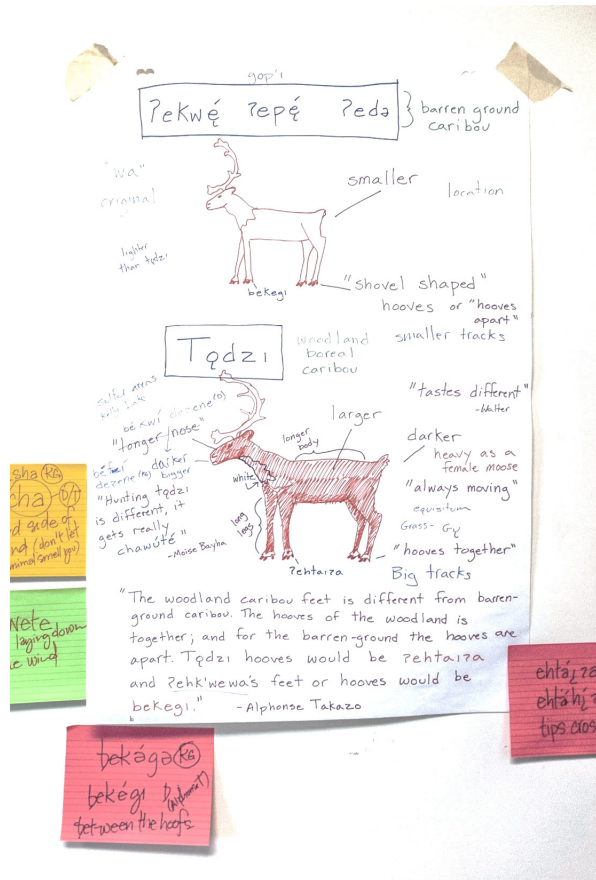 gop'ı
ɂekwę́ ɂepę́ ɂedə
barren ground
caribou
"wa"
original
smaller
location
lighter
than tǫdzı
bekegı
"shovel shaped"
hooves or "hooves
apart"
smaller tracks
Tǫdzı
woodland
boreal
caribou
sulfur areas
"longer/nose"
darker
bigger
longer
body
larger
white
long
legs
"Hunting tǫdzı
is different, it
gets really
chawúté"
-Moise Bayha
"tastes different"
-Walter
darker
heavy as a
female moose
"always moving"
equisitum
Grass-
"hooves together"
Big tracks
ɂehtaıɂa
"The woodland caribou feet is different from barren-
ground caribou. The hooves of the woodland is
together; and for the barren-ground the hooves are
apart. Tǫdzı hooves would be ɂehtaıɂa
and ɂehk'wewa's feet or hooves would be
bekegı."
-Alphonse Takazo
sha KG
cha D/T
d side of
nd (don't let
nimal smell you)
wete
laying down
e wind
bekága KG
bekégı D (Alphonse T)
between the hoofs
tips cros